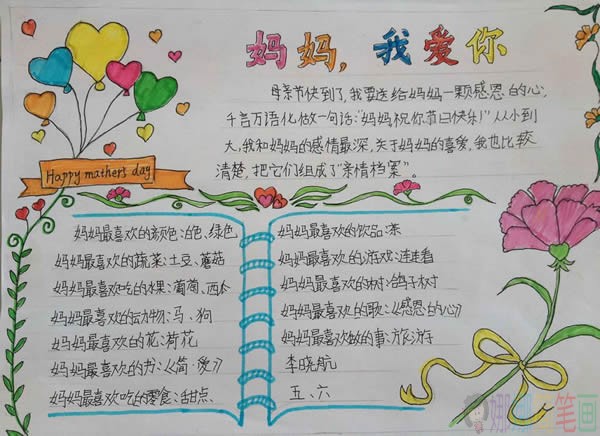 妈妈，我爱你
母亲节快到了，我要送给妈妈一颗感恩的心，
千言万语化做一句话：“妈妈祝你节日快乐！”从小到
大，我和妈妈的感情最深，关于妈妈的喜爱，我也比较
清楚，把它们组成了“亲情档案”。
Happy mather's day
妈妈最喜欢的颜色：白色、绿色
妈妈最喜欢的蔬菜：土豆、蘑菇
妈妈最喜欢吃的水果：葡萄、西瓜
妈妈最喜欢的动物：马、狗
妈妈最喜欢的花：荷花
妈妈最喜欢的书：《简·爱》
妈妈最喜欢吃的零食：甜点
妈妈最喜欢的饮品：茶
妈妈最喜欢的游戏：连连看
妈妈最喜欢的树：鸽子树
妈妈最喜欢的歌：《感恩的心》
妈妈最喜欢做的事：旅游
李晓航
五、六
笔画